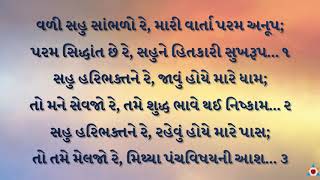 વળી સહુ સાંભળો રે, મારી વાર્તા પરમ અનૂપ;
પરમ સિદ્ધાંત છે રે, સહુને હિતકારી સુખરૂપ... ૧
સહુ હરિભક્તને રે, જાવું હોયે મારે ધામ;
તો મને સેવજો રે, તમે શુદ્ધ ભાવે થઈ નિષ્કામ... ૨
સહુ હરિભક્તને રે, રહેવું હોયે મારે પાસ;
તો તમે મેલજો રે, મિથ્યા પંચવિષયની આશ... ૩